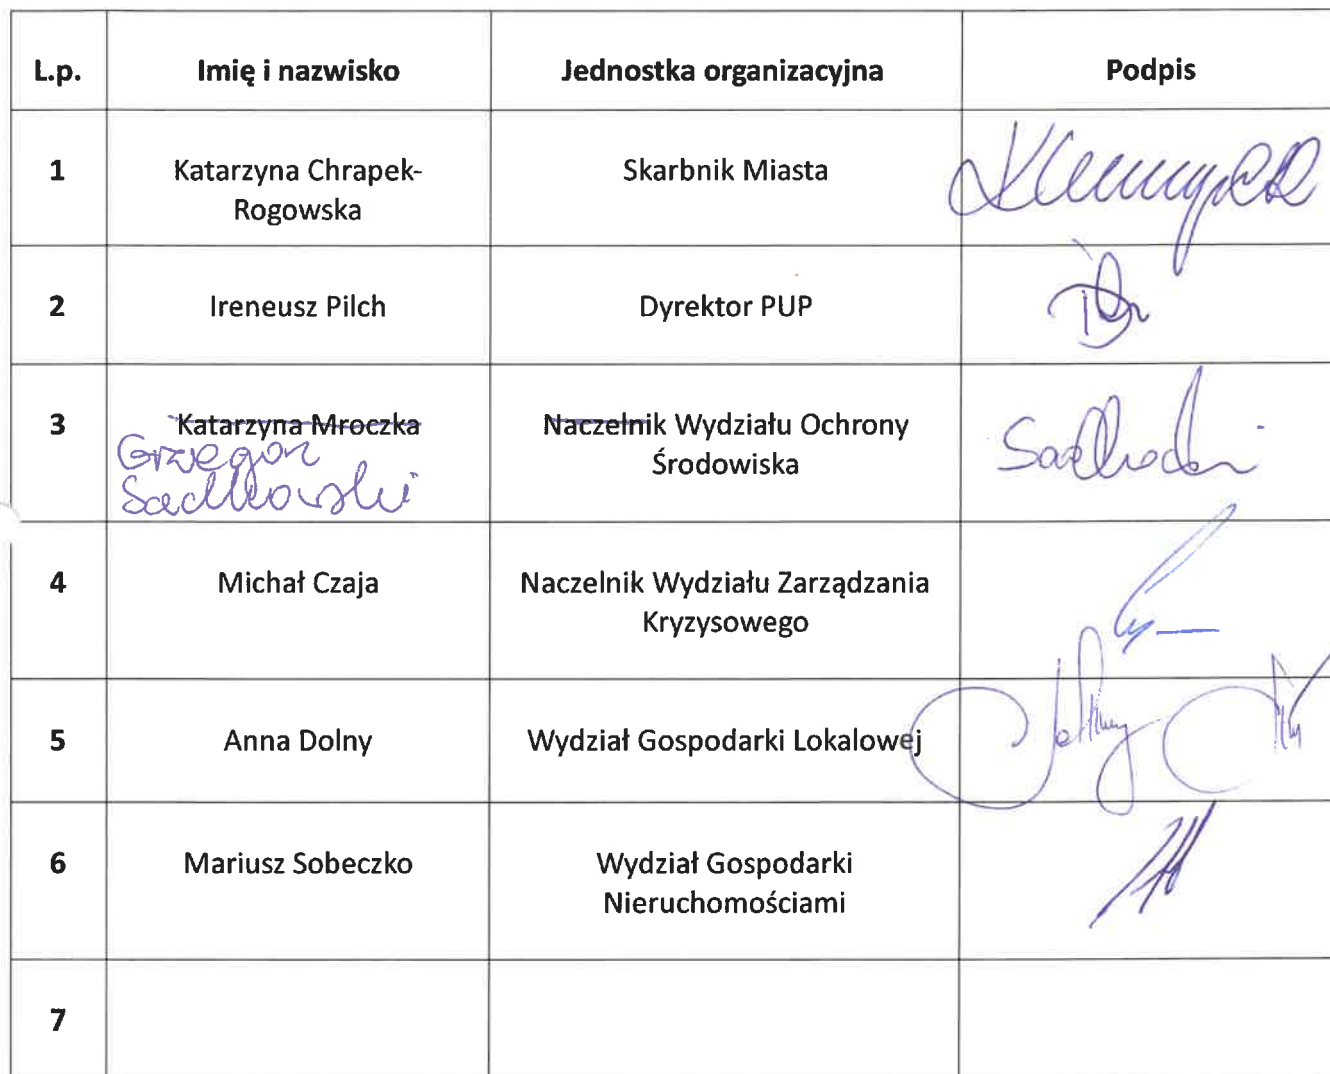 L.p. Imię i nazwisko Jednostka organizacyjna Podpis
1 Katarzyna Chrapek- Skarbnik Miasta
Rogowska
2 Ireneusz Pilch Dyrektor PUP
3 Katarzyna Mroczka Naczelnik Wydziału Ochrony
Środowiska
Grzegorz
Sadkowski
4 Michał Czaja Naczelnik Wydziału Zarządzania
Kryzysowego
5 Anna Dolny Wydział Gospodarki Lokalowej
6 Mariusz Sobeczko Wydział Gospodarki
Nieruchomościami
7